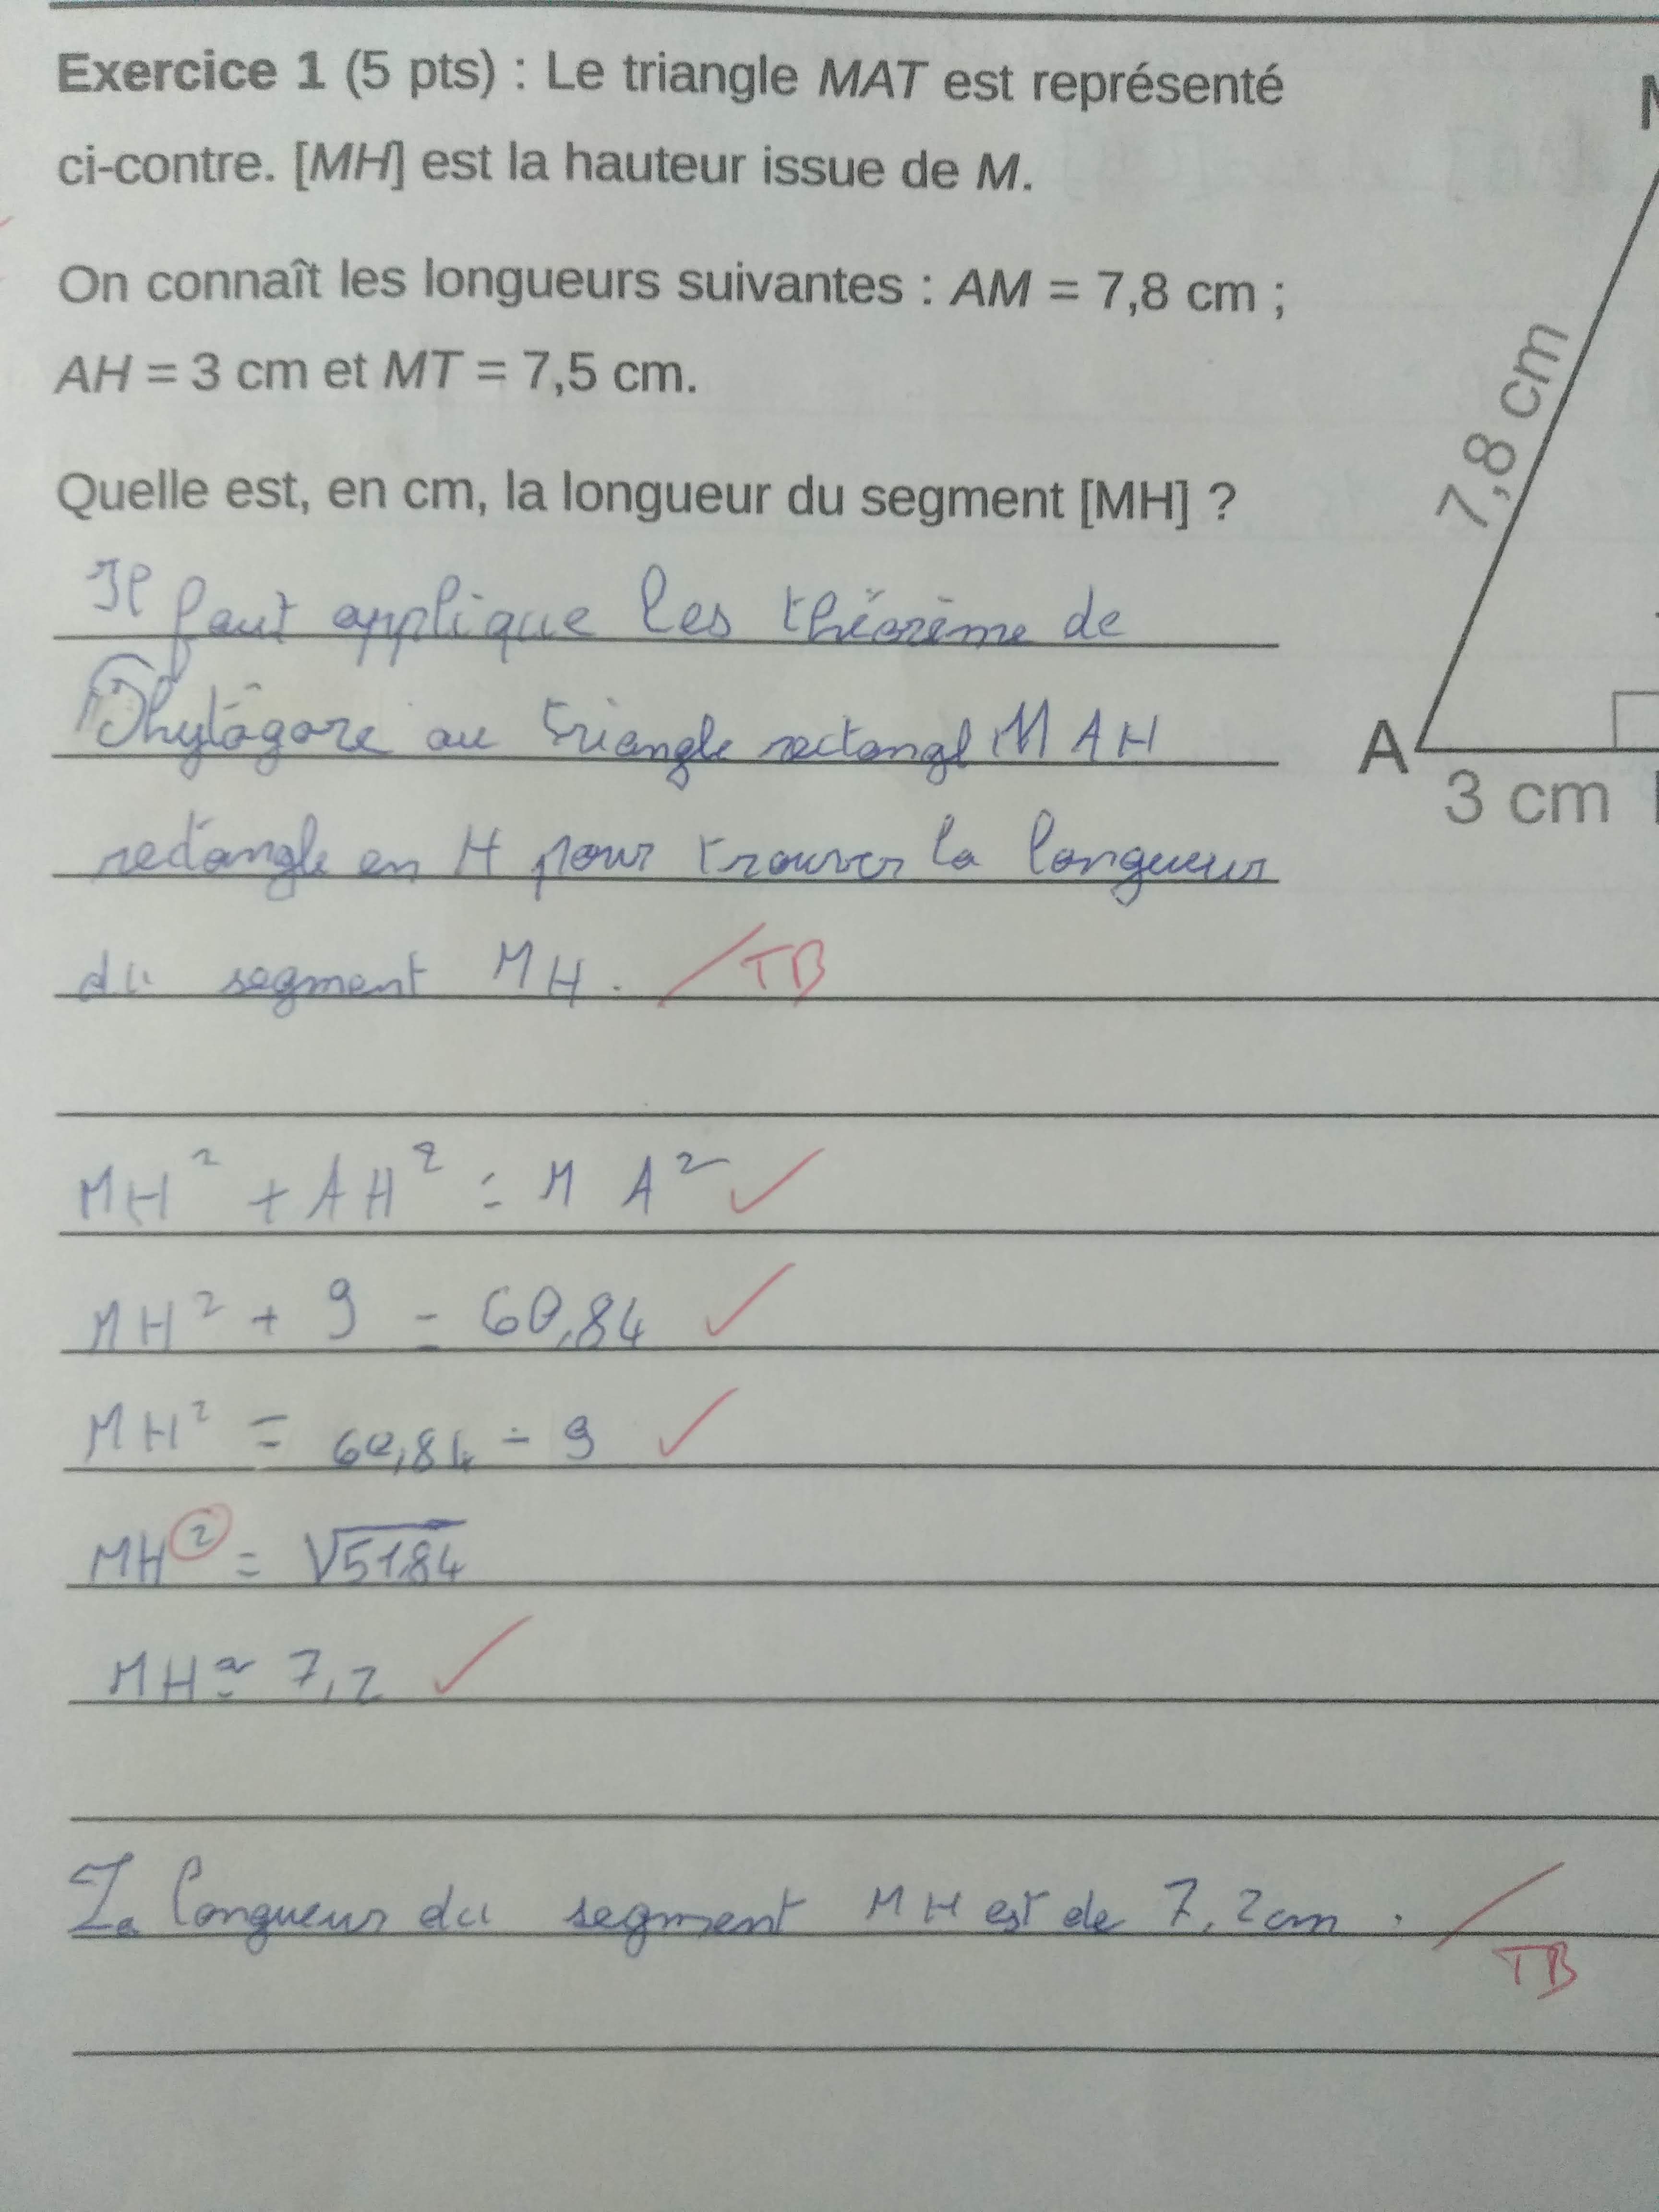 Exercice 1 (5 pts) : Le triangle MAT est représenté
ci-contre. [MH] est la hauteur issue de M.
On connaît les longueurs suivantes : AM = 7,8 cm ;
AH = 3 cm et MT = 7,5 cm.
Quelle est, en cm, la longueur du segment [MH] ?
7,8 cm
A
3 cm
Il faut applique les théorème de
Phytagore au triangle rectangl MAH
rectangle en H pour trouver la longueur
du segment MH. TB
MH² + AH² = MA²
MH² + 9 = 60,84
MH² = 60,84 - 9
MH² = √51,84
MH ≃ 7,2
La longueur du segment MH est de 7,2cm.
TB